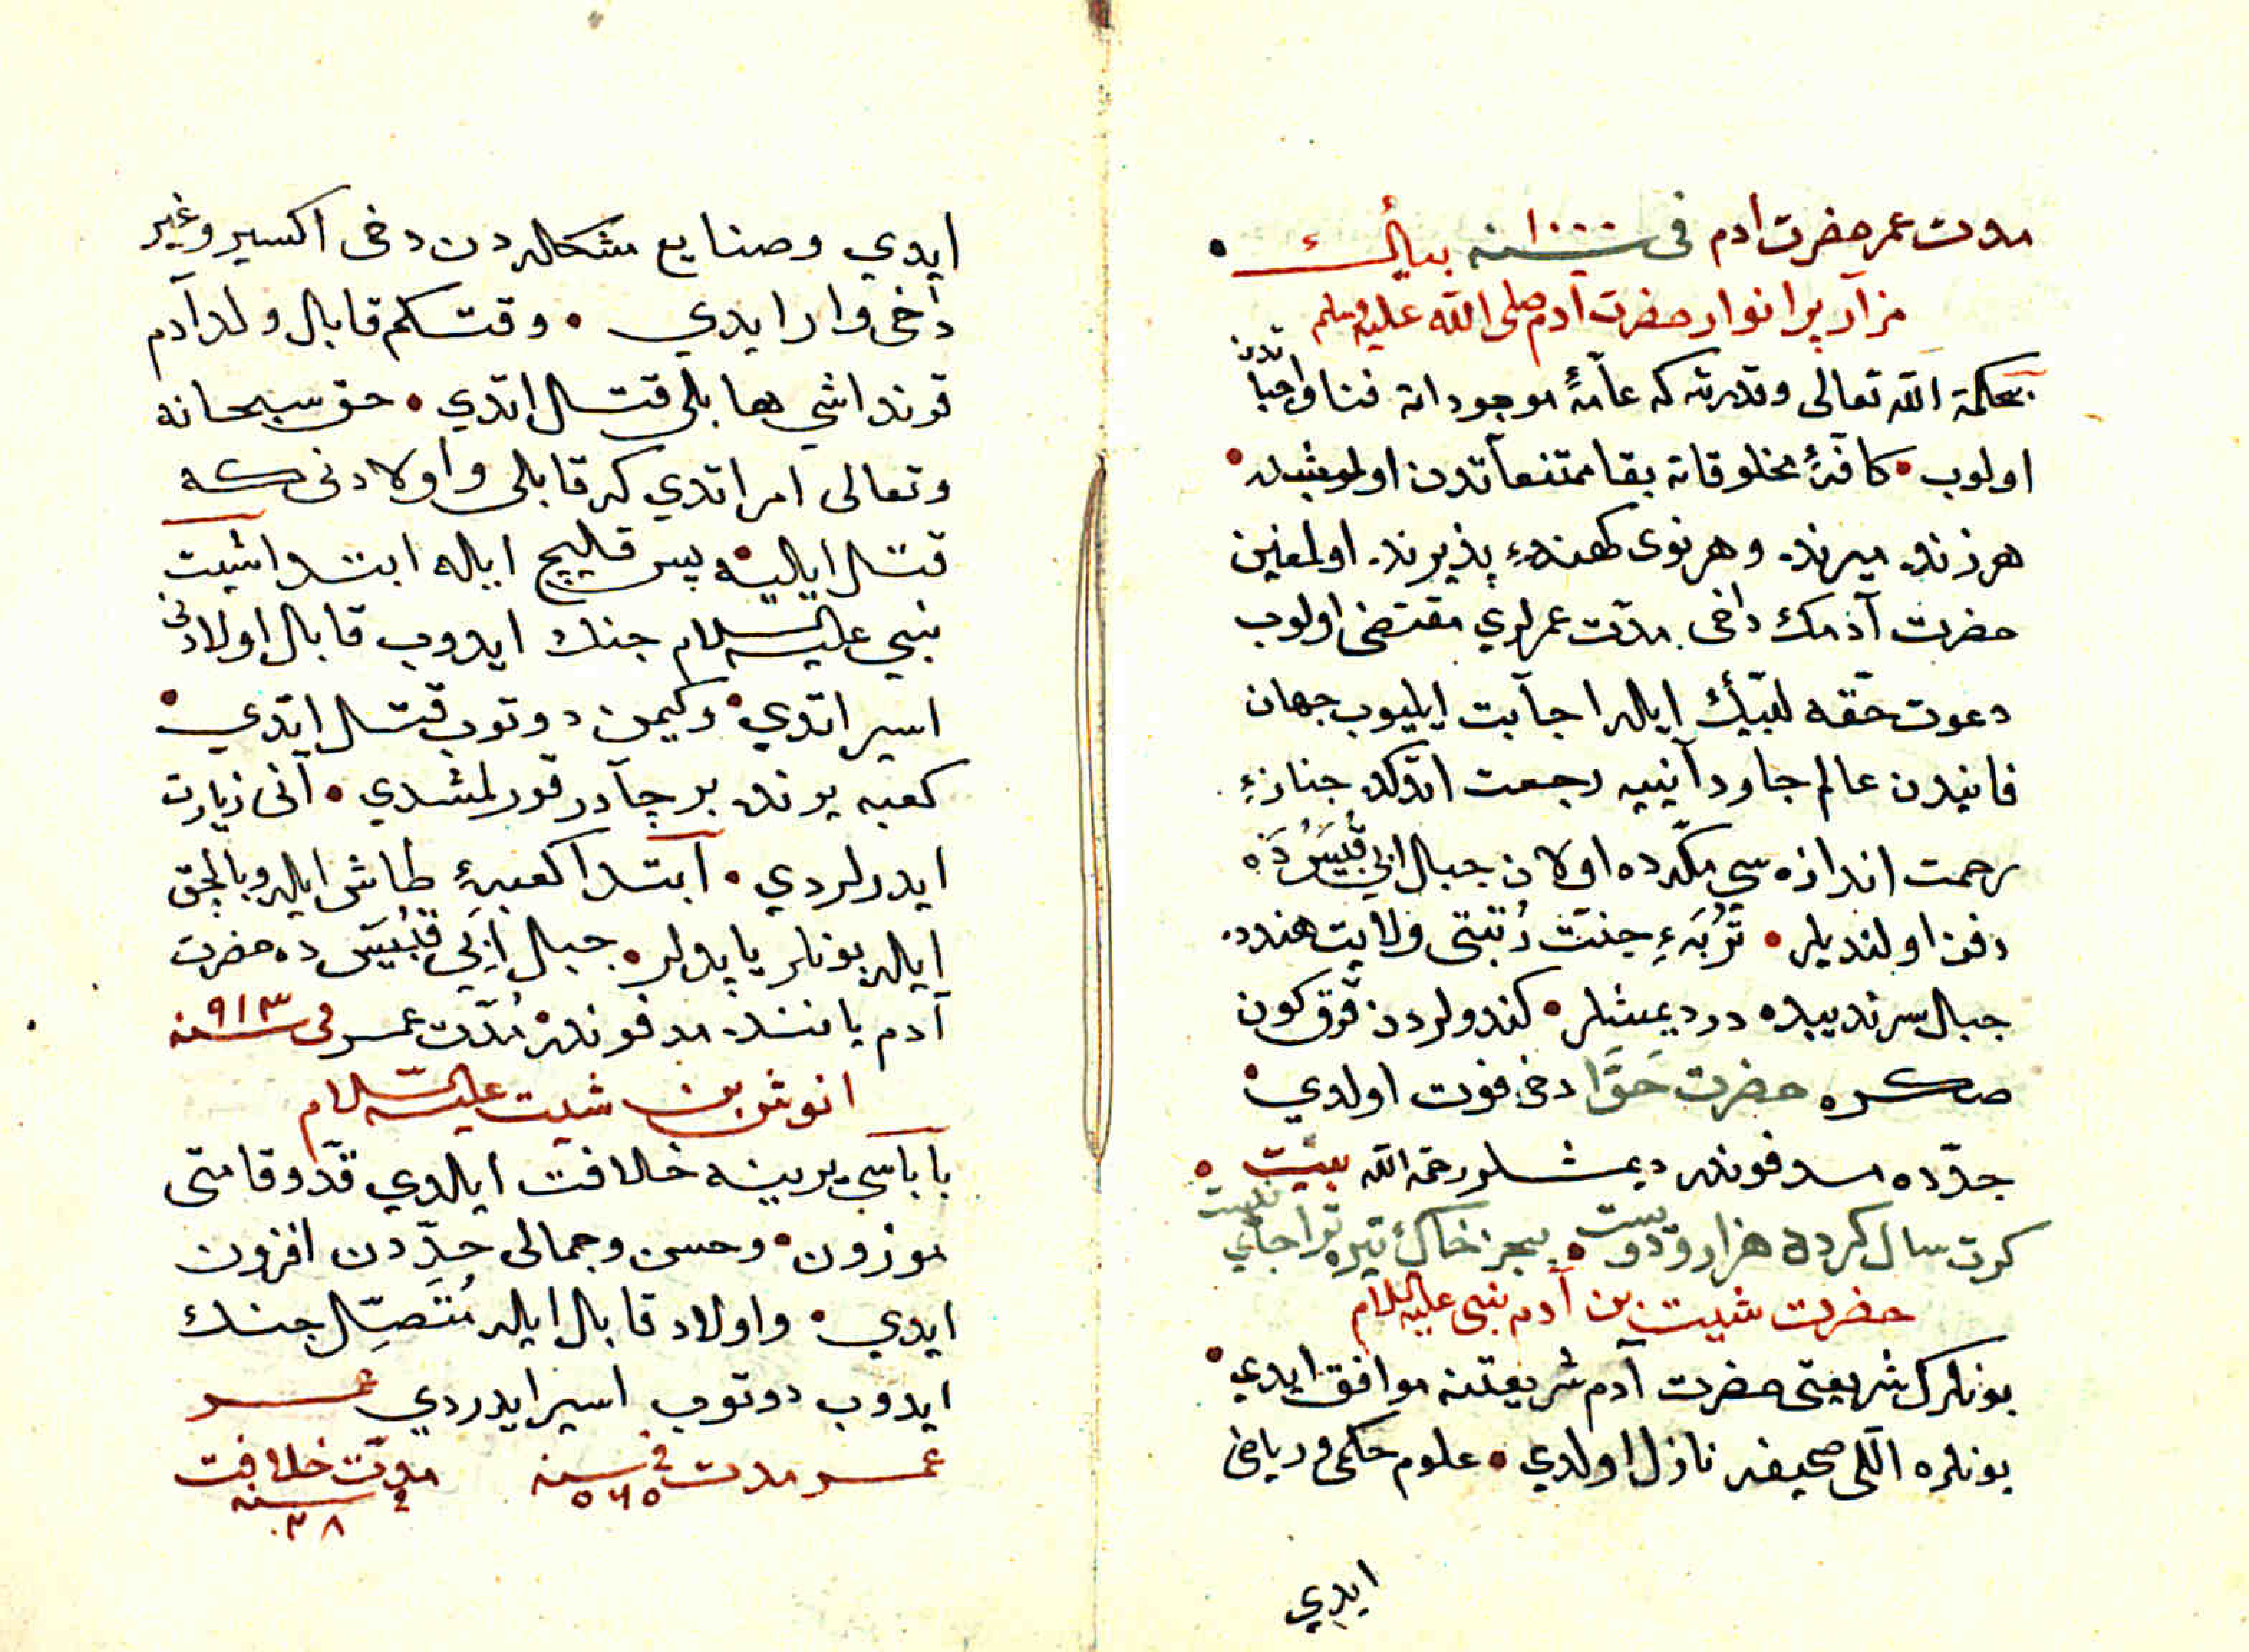 مدت عمر حضرت ادم فى سنه ١٠٠٠
مزار پر انوار حضرت آدم صلى الله عليه وسلم
بحكمة الله تعالى وقدرته كه عامّهٔ موجوداته فنا واجباتدن
اولوب • كافهٔ مخلوقاته بقا ممتنعاتدن اولمشدر •
هر زنده ميرنده وهر نوى كهنهء پذيرنده اولمغين
حضرت آدمك داخى مدّت عمرلرى مقتضى اولوب
دعوت حقّه لبّيك ايله اجابت ايليوب جهان
فانيدن عالم جاودانييه رجعت اتدكده جنازهء
رحمت اندازه سي مكّه ده اولان جبال ابي قُبَيس دَه
دفن اولنديلر • تُربَهء جنّت رُتبتى ولايت هندده
جبال سرنديبده در ديمشلر • كندولردن قرق كون
صكره حضرت حَوَّا دخى فوت اولدي •
جدّه ده مدفوندر ديمشلر رحمة الله بيت •
كرت سال كردد هزار و دويست • بجز خاك تيره ترا جاي نيست
حضرت شيت بن آدم نبى عليه السلام
بونلرك شريعتى حضرت آدم شريعتنه موافق ايدي •
بونلره اللى صحيفه نازل اولدي • علوم حكمى ورياضى
ايدي
ايدي وصنايع مشكله دن دخى اكسير وغير
داخى وار ايدي • وقتكم قابال ولد آدم
قرنداشي هابلى قتل اتدي • حق سبحانه
وتعالى امر اتدي كه قابلى واولادنى كه
قتل ايليه • پس قليچ ايله ابتدا شيت
نبي عليه السلام جنك ايدوب قابال اولادنى
اسير اتدي • وكيمن دوتوب قتل ايتدي •
كعبه يرنده بر چادر قورلمشدي • آنى زيارت
ايدرلردي • ابتدا كعبهٔ طاش ايله وبالچق
ايله بونلر ياپديلر • جبال اَبي قُبَيس ده حضرت
آدم ياننده مدفوندر • مُدّت عمر فى سنه ٩١٣
انوش بن شيت عليه السلام
باباسي يرينه خلافت ايلدي قدّ وقامتى
موزون • وحسن وجمالى حدّدن افزون
ايدي • واولاد قابال ايله مُتَّصِل جنك
ايدوب دوتوب اسير ايدردي عمر
عمر مدت فى سنه ٥٦٥ مدّت خلافت
سنه ٣٨